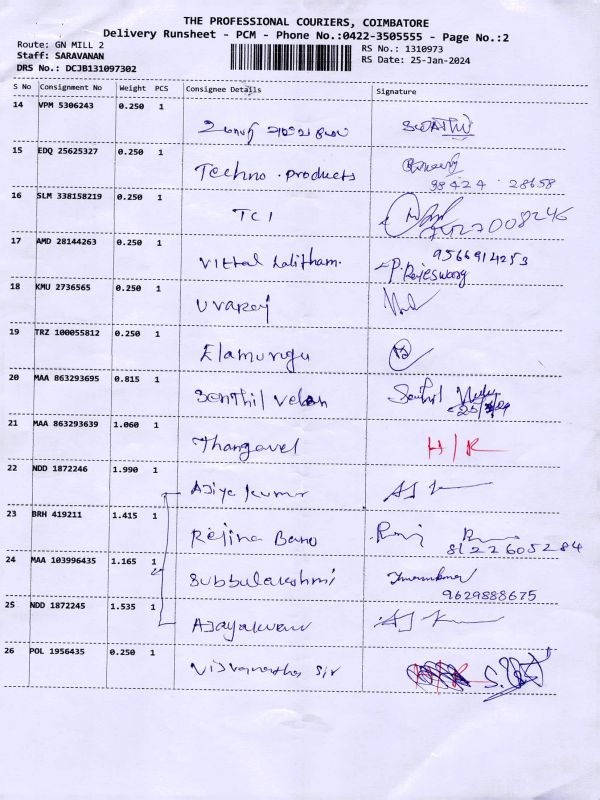 THE PROFESSIONAL COURIERS, COIMBATORE
Delivery Runsheet - PCM - Phone No.:0422-3505555 - Page No.:2
Route: GN MILL 2
Staff: SARAVANAN
DRS No.: DCJB131097302
RS No.: 1310973
RS Date: 25-Jan-2024
S No Consignment No Weight PCS Consignee Details Signature
14 VPM 5306243 0.250 1
SWATHI
15 EDQ 25625327 0.250 1 Techno. products
98424 28658
16 SLM 338158219 0.250 1 TCI
17 AMD 28144263 0.250 1 Vittal Lalitham.
9566914253
P. Rajeswari
18 KMU 2736565 0.250 1 Uvaraj
19 TRZ 100055812 0.250 1 Elamurugu
20 MAA 863293695 0.815 1 Senthil Velan Senthil
21 MAA 863293639 1.060 1 Thangavel H/R
22 NDD 1872246 1.990 1 Ajiya kumar
23 BRH 419211 1.415 1 Rejina Banu
8122605284
24 MAA 103996435 1.165 1 Subbulakshmi
9629888675
25 NDD 1872245 1.535 1
26 POL 1956435 0.250 1 Sir